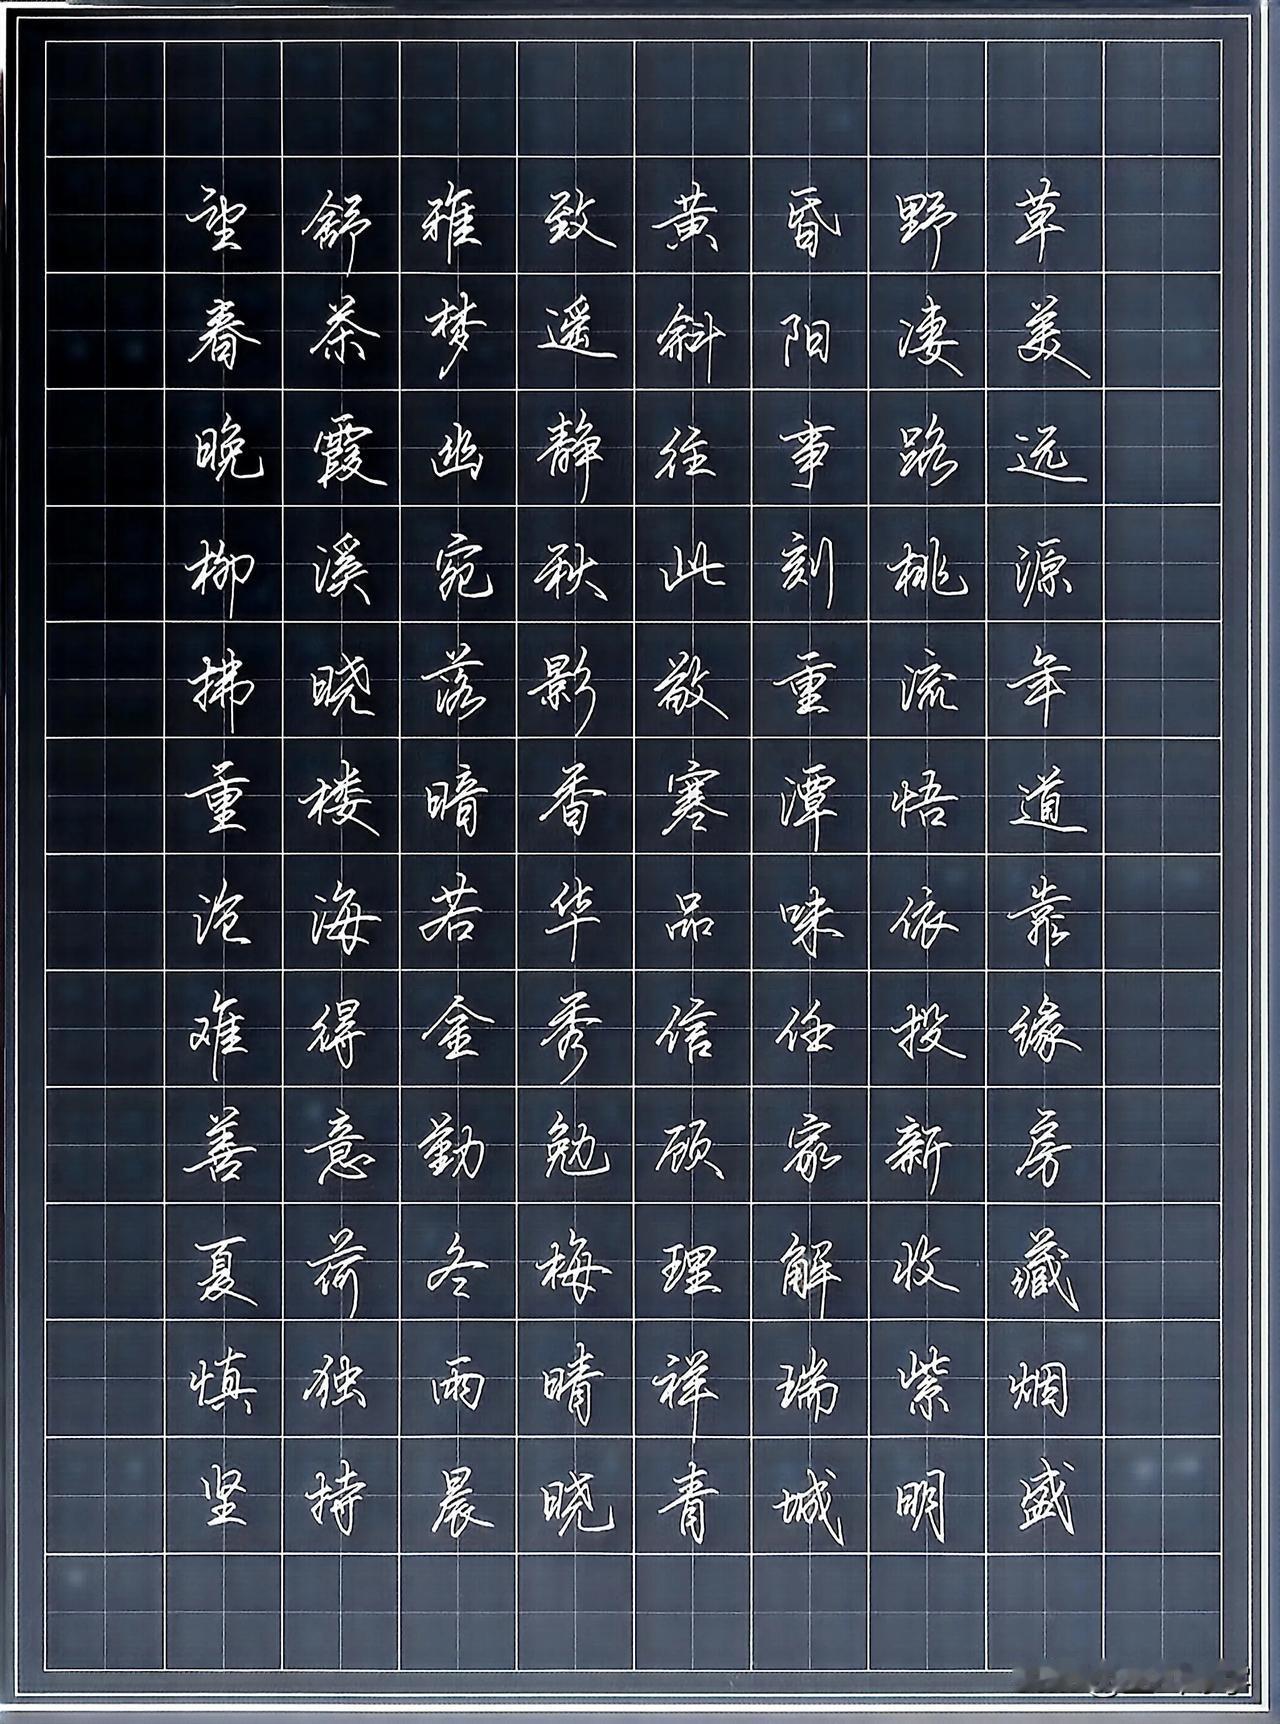 望舒雅致黄昏野草
春茶梦遥斜阳凄美
晚霞幽静往事路远
柳溪宛秋此刻桃源
拂晓落影敬重流年
重楼暗香寒潭悟道
沧海若华品味依靠
难得金秀信任投缘
善意勤勉顾家新房
夏荷冬梅理解收藏
慎独雨晴祥瑞紫烟
坚持晨晓青城明盛